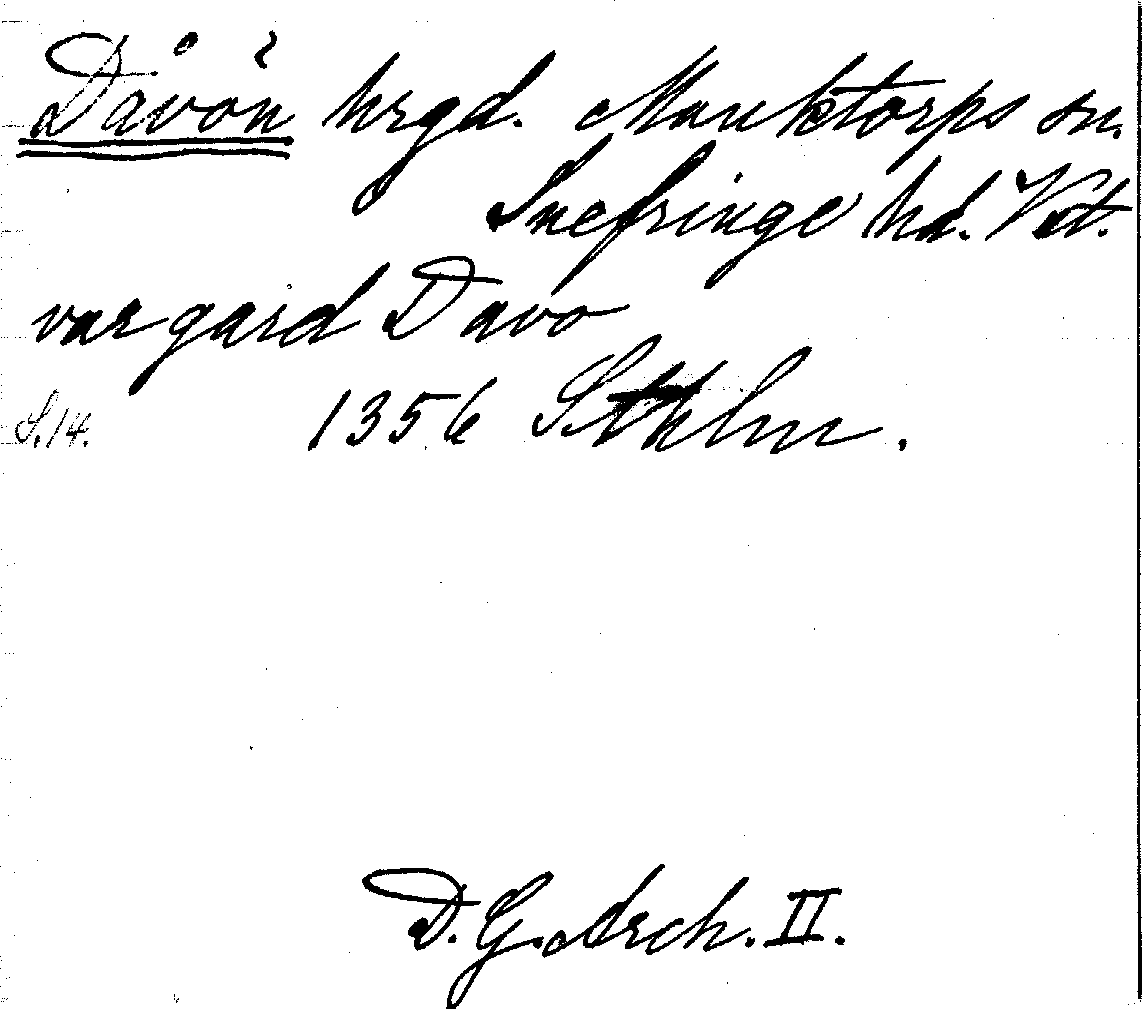 Dåvön hrgd. Munktorps sn.
Snefringe hd. Vstt.
var gard Davo
S.14. 1356 Sthlm.
D. G. Arch. II.